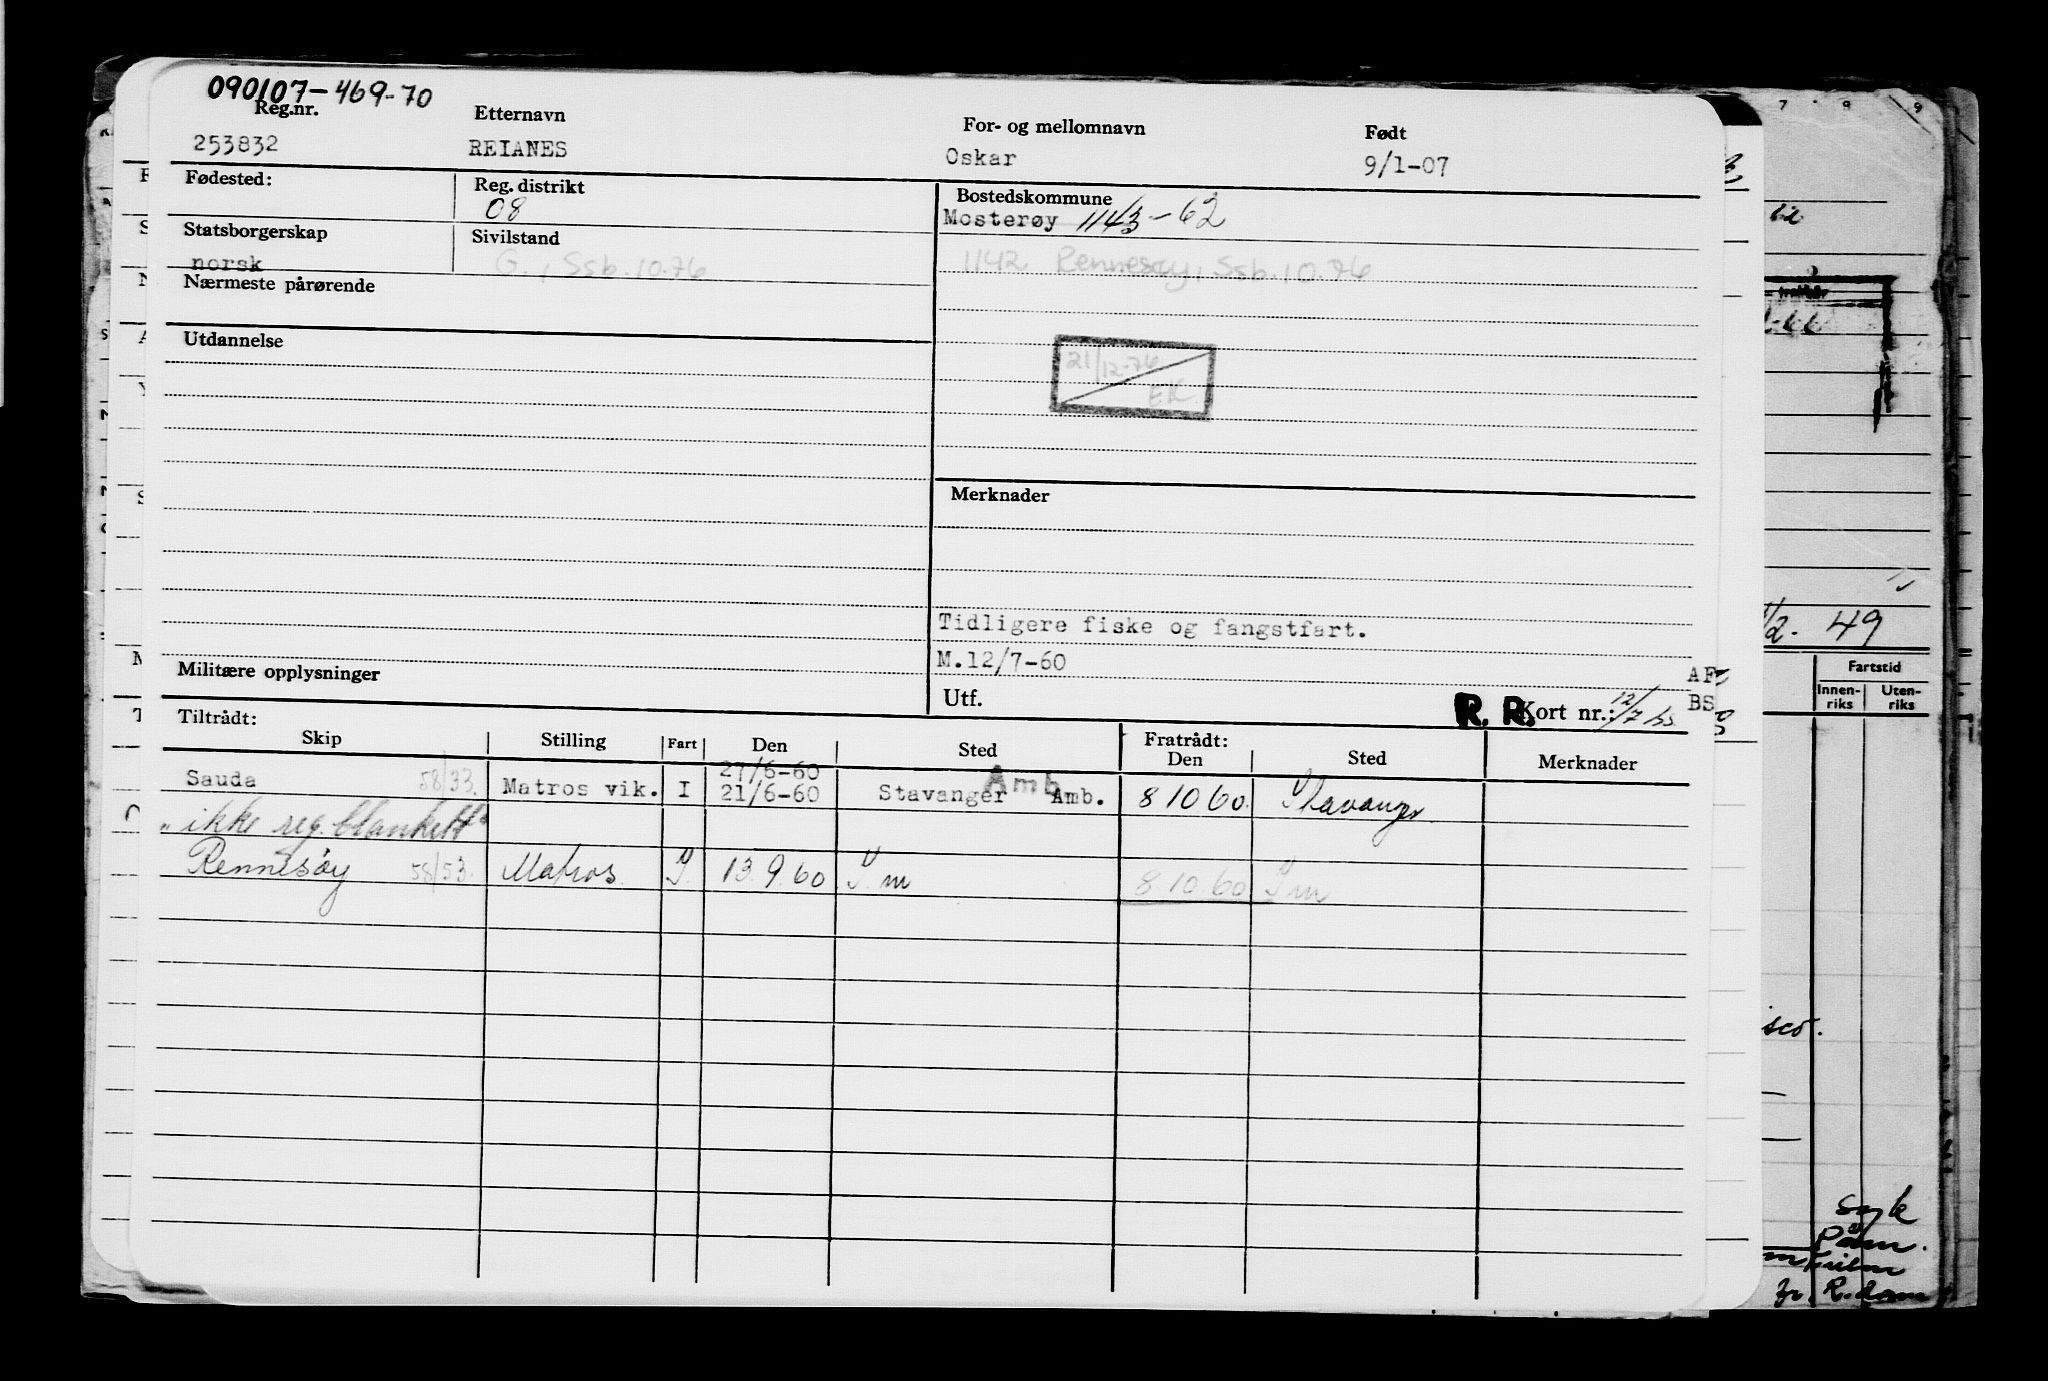 090107-469-70
Reg.nr. Etternavn For- og mellomnavn Født
253832 REIANES Oskar 9/1-07
Fødested: Reg. distrikt Bostedskommune
08 Mosterøy 1143-62
Statsborgerskap Sivilstand
norsk G., Ssb.10.76 1142 Rennesøy, Ssb.10.76
Nærmeste pårørende
Utdannelse
21/12-76
EK.
Merknader
Tidligere fiske og fangstfart.
M.12/7-60
Militære opplysninger
Utf. R. R. Kort nr.: 12/7
Tiltrådt: Fratrådt:
Skip Stilling Fart Den Sted Den Sted Merknader
27/6-60 Amb
Sauda 58/33. Matros vik. I 21/6-60 Stavanger Amb. 8 10 60. Stavanger
"ikke reg. blankett"
Rennesøy 58/53. Matros. I. 13.9.60 S.m 8.10.60 S.m
7 8 9
62
49
Fartstid
Innen-riks Uten-riks
AF
BS
isco.
R.dam